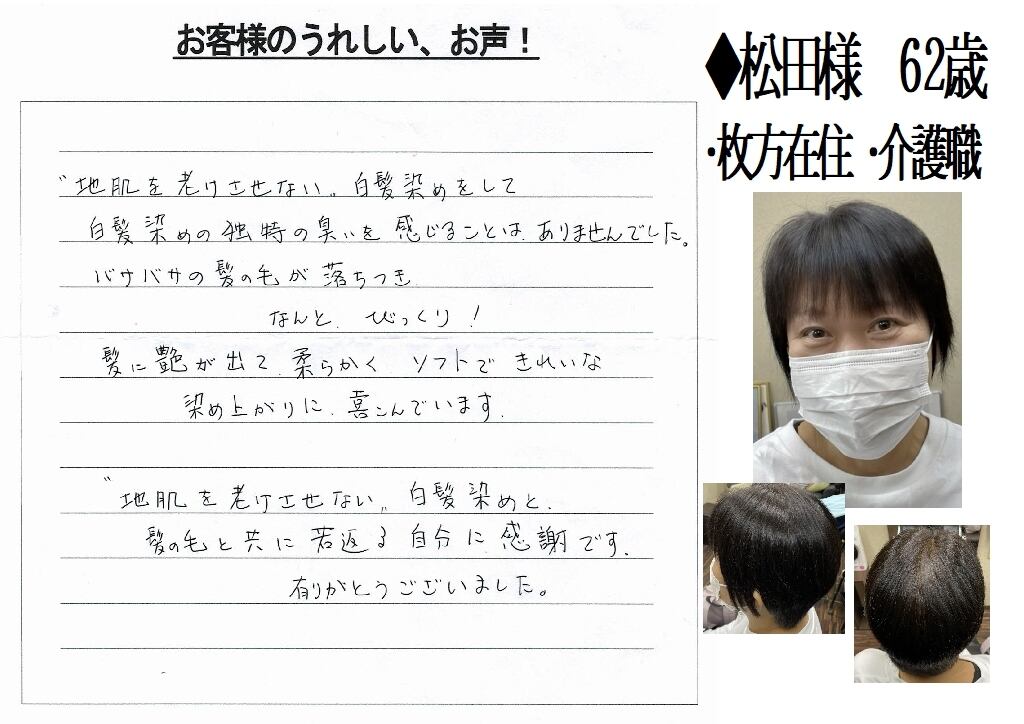 お客様のうれしい、お声！
◆松田様　62歳
・枚方在住 ・介護職
〝地肌を老けさせない〟白髪染めをして
白髪染めの独特の臭いを感じることは、ありませんでした。
バサバサの髪の毛が落ちつき、
なんと、びっくり！
髪に艶が出て、柔らかく ソフトで きれいな
染め上がりに、喜こんでいます。
〝地肌を老けさせない〟白髪染めと、
髪の毛と共に若返る自分に、感謝です。
有りがとうございました。